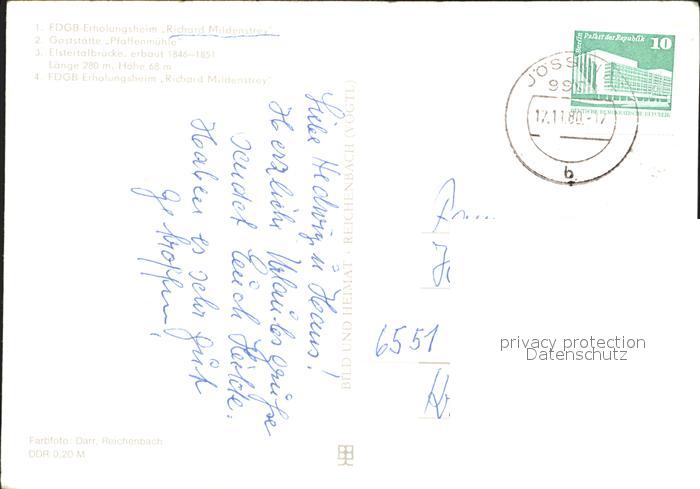 1. FDGB-Erholungsheim „Richard Mildenstrey“
2. Gaststätte „Pfaffenmühle“
3. Elstertalbrücke, erbaut 1846–1851
Länge 280 m, Höhe 68 m
4. FDGB-Erholungsheim „Richard Mildenstrey“
Berlin Palast der Republik 10
DEUTSCHE DEMOKRATISCHE REPUBLIK
JÖSS
99
17.11.80.-17
b
Liebe Hedwig u Hans!
Herzliche Urlaubsgrüße
sendet Euch
Haben es sehr gut
getroffen!
BILD UND HEIMAT · REICHENBACH (VOGTL)
6551
privacy protection
Datenschutz
Farbfoto: Darr, Reichenbach
DDR 0,20 M